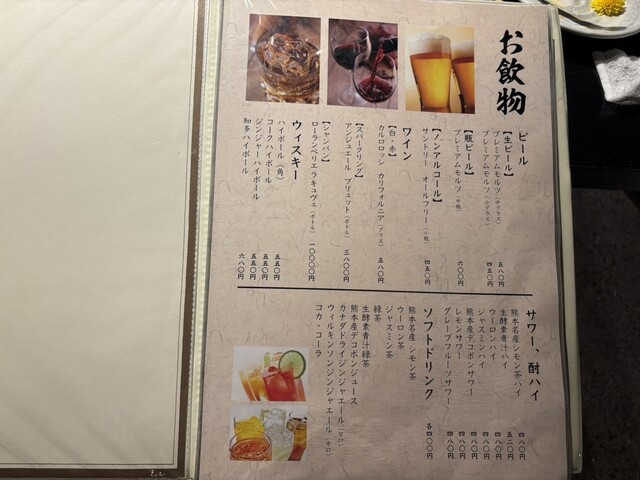 お飲物
ビール
【生ビール】
プレミアムモルツ（中グラス） 五八〇円
プレミアムモルツ（小グラス） 四五〇円
【瓶ビール】
プレミアムモルツ（中瓶） 六〇〇円
【ノンアルコール】
サントリー オールフリー（小瓶） 四五〇円
ワイン
【白・赤】
カルロロッシ カリフォルニア（グラス） 五八〇円
【スパークリング】
アンジュエール ブリュット（ボトル） 三八〇〇円
【シャンパン】
ローランペリエ ラキュヴェ（ボトル） 一〇〇〇〇円
ウィスキー
ハイボール（角） 五五〇円
コークハイボール 五五〇円
ジンジャーハイボール 五五〇円
知多ハイボール 六八〇円
サワー、酎ハイ
熊本名産 シモン茶ハイ 四八〇円
生酵素青汁ハイ 五二〇円
ウーロンハイ 四八〇円
ジャスミンハイ 四八〇円
熊本産デコポンサワー 四八〇円
レモンサワー 四八〇円
グレープフルーツサワー 四八〇円
ソフトドリンク
各四〇〇円
熊本名産 シモン茶
ウーロン茶
ジャスミン茶
緑茶
生酵素青汁緑茶
熊本産デコポンジュース
カナダドライジンジャエール（甘口）
ウィルキンソンジンジャエール（辛口）
コカ・コーラ